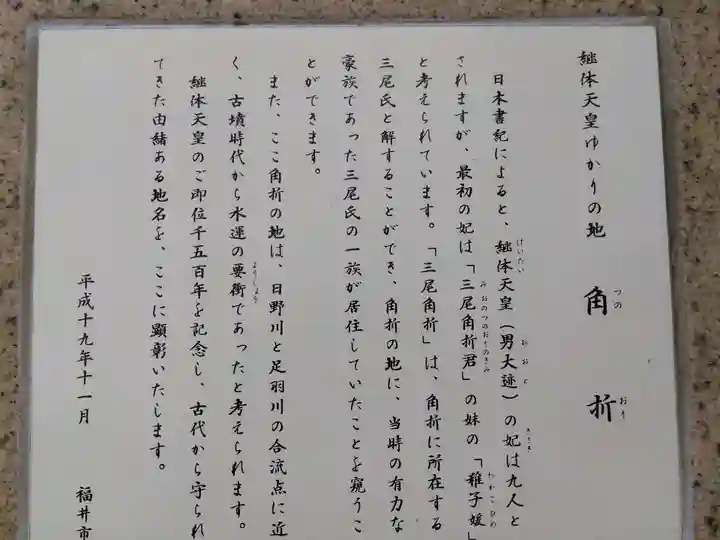 継体天皇ゆかりの地 角折
つの おり
日本書紀によると、継体天皇(男大迹)の妃は九人と
けいたい おおど きさき
されますが、最初の妃は「三尾角折君」の妹の「稚子媛」
みおのつのおりのきみ わかこひめ
と考えられています。「三尾角折」は、角折に所在する
三尾氏と解することができ、角折の地に、当時の有力な
豪族であった三尾氏の一族が居住していたことを窺うこ
とができます。
また、ここ角折の地は、日野川と足羽川の合流点に近
く、古墳時代から水運の要衝であったと考えられます。
ようしょう
継体天皇のご即位千五百年を記念し、古代から守られ
てきた由緒ある地名を、ここに顕彰いたします。
平成十九年十一月 福井市